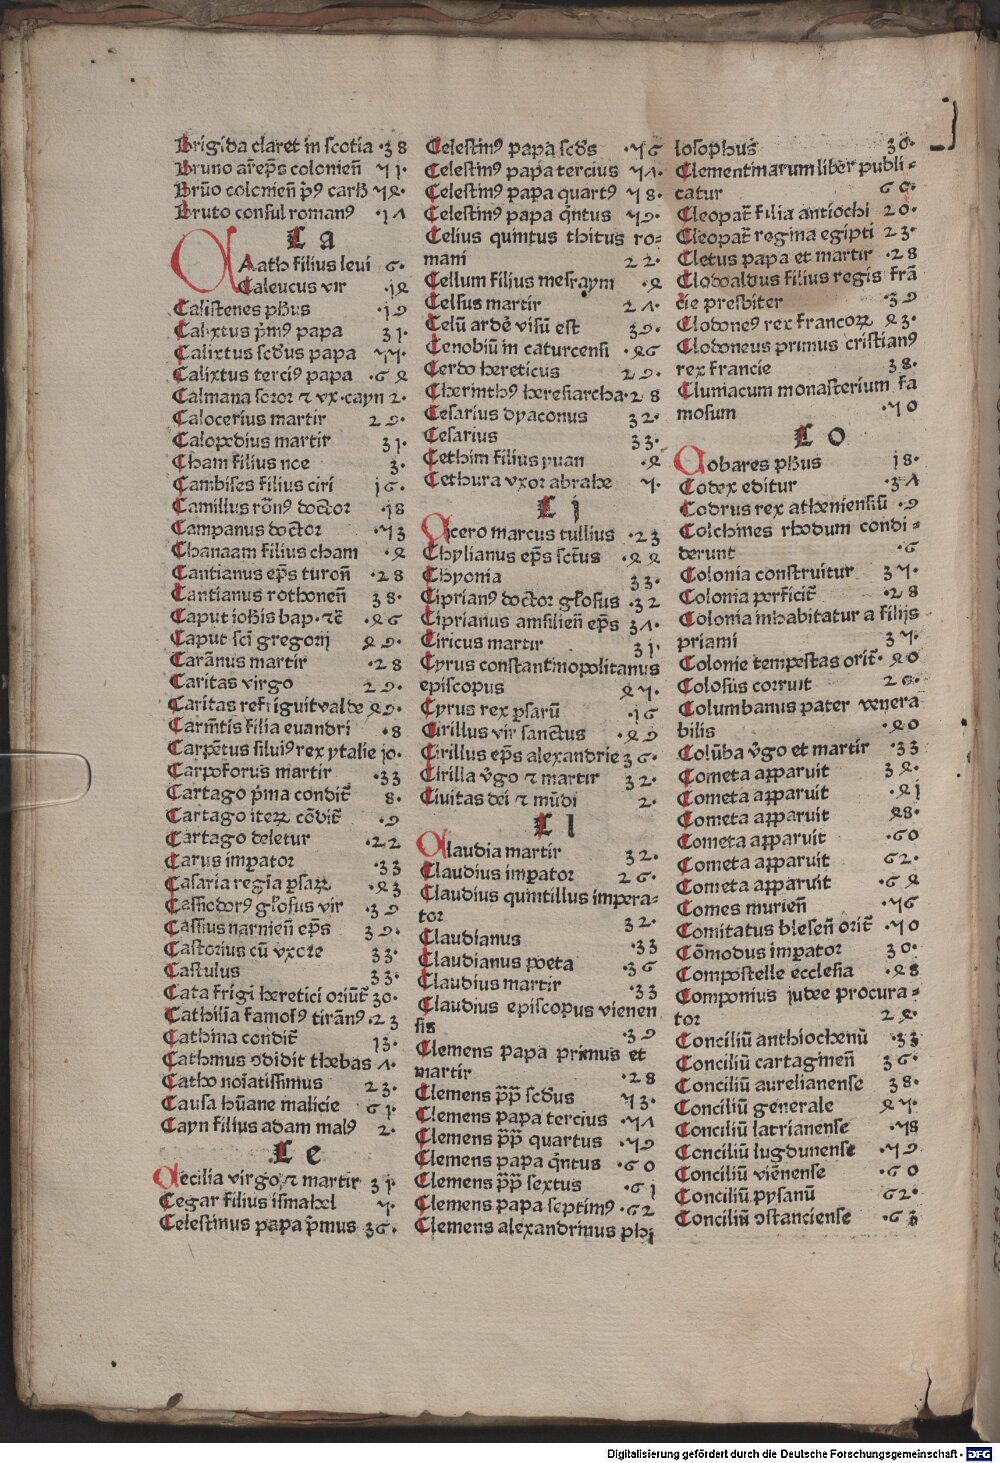 Brigida claret in scotia ·38
Bruno ar̃ep̃s colonieñ 51·
Brũo colonieñ pꝰ carħ 54·
Bruto consul romanꝰ ·17
Ca
Caath filius levi 6·
Caleucus vir ·14
Calistenes pħus ·19
Calixtus p̃mꝰ papa 31·
Calixtus scd̃us papa 55·
Calixtus terciꝰ papa ·64
Calmana soror ⁊ vx·cayn 2·
Calocerius martir 29·
Calopodius martir 31·
Cham filius noe 3·
Cambises filius ciri 16·
Camillus rõn̄ doctor ·18
Campanus doctor ·53
Chanaam filius cham ·4
Cantianus ep̃s turoñ ·28
Cantianus rothoneñ 38·
Caput ioħis bap·⁊c̃ ·46
Caput sc̃i gregorij 49·
Carãnus martir ·28
Caritas virgo 29·
Caritas refriguit valde 49·
Carm̃tis filia euandri ·8
Carpẽtus siluiꝰ rex ytalie 10·
Carpoforus martir ·33
Cartago p̃ma condit̃ 8·
Cartago iteꝝ cõdit̃ ·9
Cartago deletur ·22
Carus imꝑator ·33
Casaria regĩa ꝑsaꝝ ·43
Cassiodorꝰ gl̃osus vir ·39
Cassius narnieñ ep̃s 39·
Castorius cũ vxore 33·
Castulus 33·
Cata frigi heretici oriũt̃ 30·
Cathilĩa famosꝰ tirãnꝰ ·23
Cathina condit̃ 13·
Cathmus ꝯdidit thebas 7·
Catho noĩatissimus 23·
Causa hũane malicie 61·
Cayn filius adam malꝰ 2·
Ce
Cecilia virgo ⁊ martir 31·
Cegar filius ismahel 5·
Celestinus papa p̃mus 36·
Celestinꝰ papa scd̃s ·56
Celestinꝰ papa tercius 57·
Celestinꝰ papa quartꝰ 58·
Celestinꝰ papa q̃ntus 59·
Celius quintus thitus ro-
mani 22·
Cellum filius mesraym ·4
Celsus martir 27·
Celũ ardẽ visũ est 39·
Cenobiũ in caturcensi ·46
Cerdo hereticus 29·
Cherinthꝰ heresiarcha·28
Cesarius dyaconus 32·
Cesarius 33·
Cethim filius yuan ·4
Cethura vxor abrahe 5·
Ci
Cicero marcus tullius ·23
Chylianus ep̃s sct̃us ·44
Chyonia 33·
Ciprianꝰ doctor gl̃osus ·32
Ciprianus amsilieñ ep̃s 37·
Ciricus martir 31·
Cyrus constantinopolitanus
episcopus 45·
Cyrus rex ꝑsarũ ·16
Cirillus vir sanctus ·49
Cirillus ep̃s alexandrie 36·
Cirilla v̾go ⁊ martir 32·
Civitas dei ⁊ mũdi 2·
Cl
Claudia martir 32·
Claudius imꝑator 26·
Claudius quintillus impera-
tor 32·
Claudianus ·33
Claudianus poeta ·36
Claudius martir ·33
Claudius episcopus vienen
sis ·39
Clemens papa primus et
martir ·28
Clemens p̃p̃ scd̃us 53·
Clemens papa tercius ·57
Clemens p̃p̃ quartus ·59
Clemens papa q̃ntus ·60
Clemens p̃p̃ sextus ·61
Clemens papa septimꝰ ·62
Clemens alexandrinus phi
losophus 30·
Clementinarum liber publi-
catur 60·
Cleopat̃ filia antiochi 20·
Cleopat̃ regina egipti 23·
Cletus papa et martir ·28
Clodoaldus filius regis frã
cie presbiter ·39
Clodoneꝰ rex francoꝝ 43·
Clodoneus primus cristianꝰ
rex francie 38·
Cluniacum monasterium fa
mosum ·50
Co
Cobares pħus 18·
Codex editur ·37
Codrus rex atheniensiũ ·9
Colchines rhodum condi-
derunt ·6
Colonia construitur 35·
Colonia perficit̃ ·28
Colonia inhabitatur a filijs
priami 35·
Colonie tempestas orit̃· 40
Colosus corruit 20·
Columbanus pater venera
bilis ·40
Colũba v̾go et martir ·33
Cometa apparuit 34·
Cometa apparuit ·41
Cometa apparuit 48·
Cometa apparuit ·60
Cometa apparuit 62·
Cometa apparuit ·64
Comes murieñ ·56
Comitatus bleseñ orit̃ ·50
Cõmodus imꝑator 30·
Compostelle ecclesia ·48
Componius judee procura-
tor 24·
Conciliũ anthiochenũ ·33
Conciliũ cartagineñ 36·
Conciliũ aurelianense 38·
Conciliũ generale 45·
Conciliũ latrianense ·58
Conciliũ lugdunense ·59
Conciliũ viẽnense ·60
Conciliũ pysanũ 62·
Conciliũ ꝯstanciense ·63
Digitalisierung gefördert durch die Deutsche Forschungsgemeinschaft - DFG